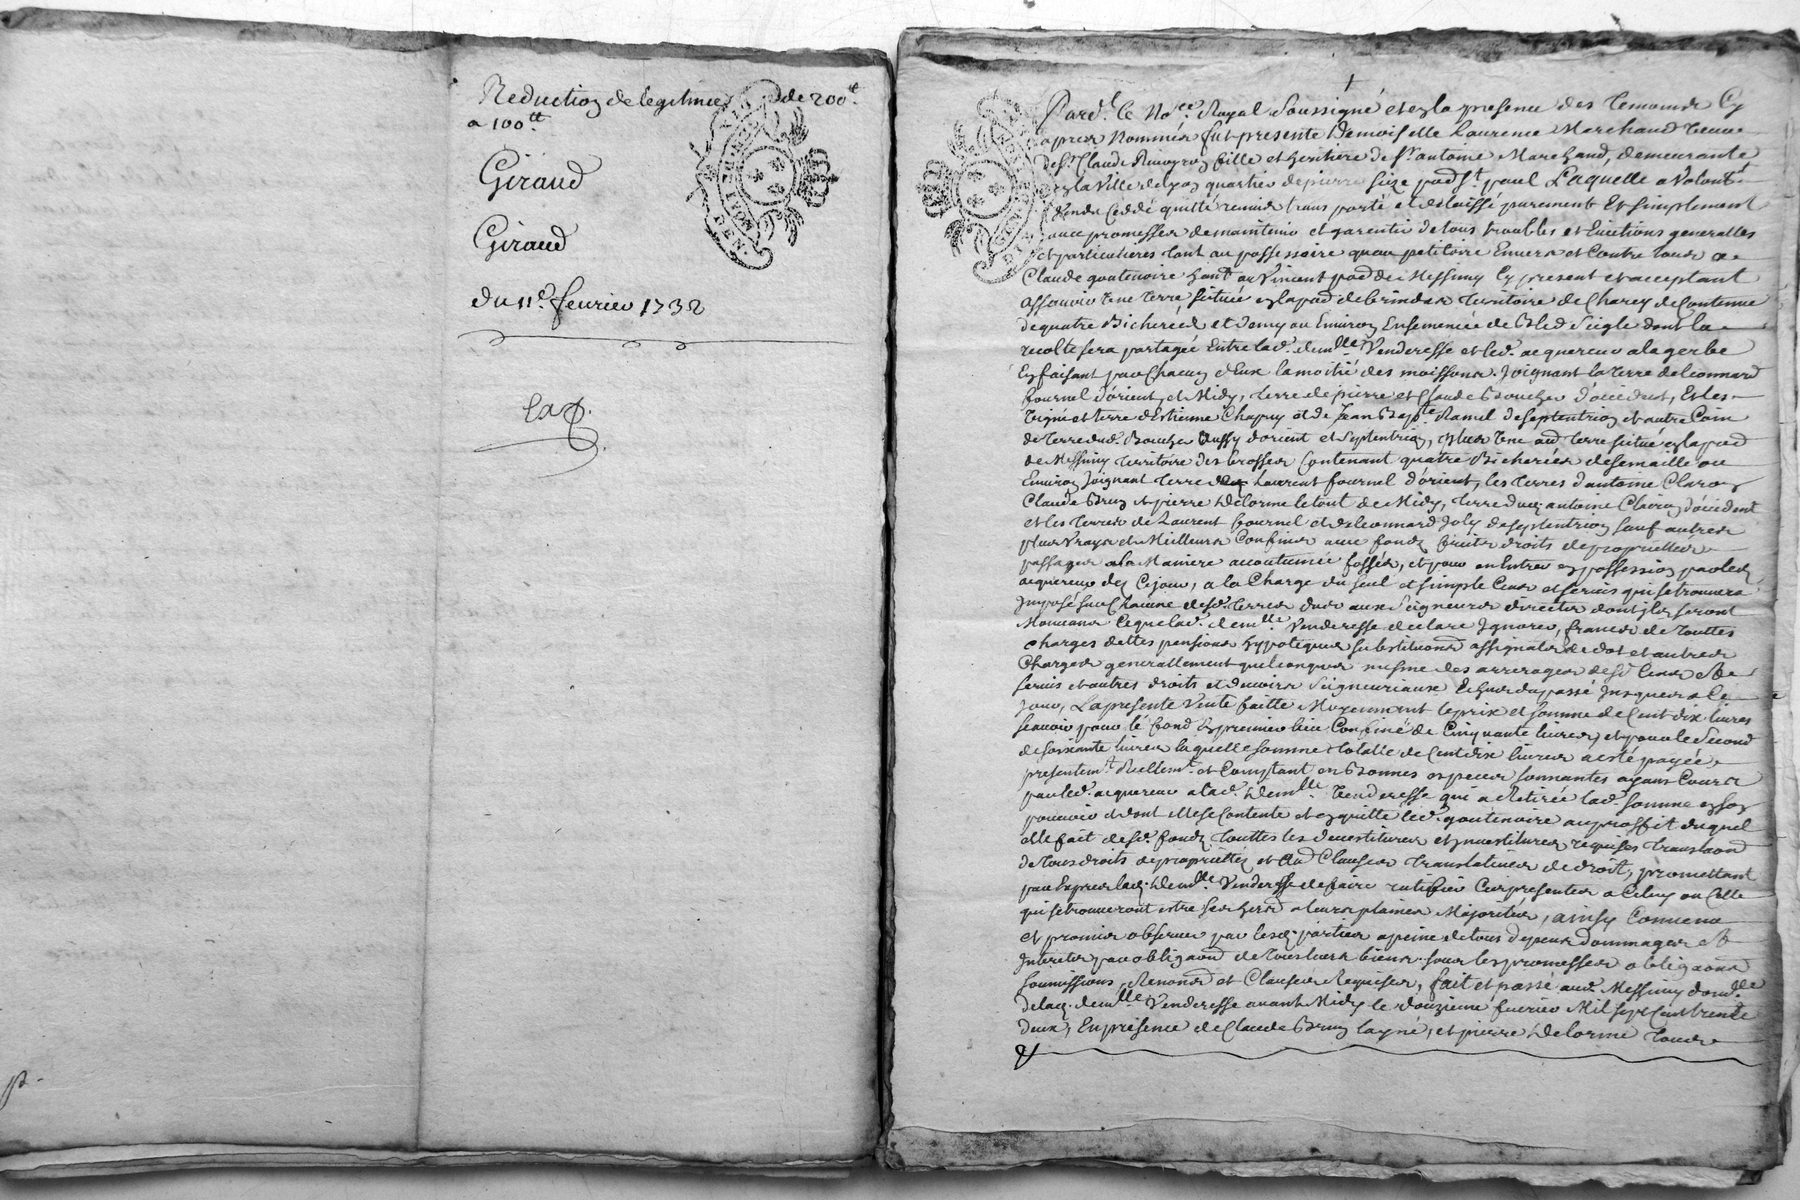 Reduction de legitime de 200tt
a 100tt
Giraud
Giraud
du 11e fevrier 1732
Pard.t le No.re Royal Soussigné et en la presence des temoins cy
apres nommés fut presente Demoiselle Laurence Marchand veuve
de Sr Claude fille et heritiere de Sr antoine Marchand, demeurante
en la ville de Lyon quartier de pierre Size parsse St paul Laquelle a volont.t
vendu ceddé quitté remis transporté et delaissé purement et simplement
avec promesses de maintenir et garentir de tous troubles et Evictions generalles
et particulieres tant au possessoire quau petitoire Envers et Contre tous a
Claude goutenoire habt au Vincent parsse de Messimy Cy present et acceptant
assavoir une terre située en la parsse de brindas territoire de Charey de Contenue
de quatre Bicherées et demy ou Environ Ensemencée de Bled Seigle dont la
recolte sera partagée entre lad. demlle Venderesse et led. acquereur a la gerbe
En faisant par Chacun d'Eux la moitié des moissons. Joignant la terre de leonnard
fournel d'orient, et Midy, terre de pierre et Claude Boucher d'occident, Et les
vigne et terre d'Estienne Chapuy et de Jean Bapte Ramel de septentrion et autre Coin
de terre dud. Boucher Aussy d'orient et Septentrion, plus une aud terre située en la parsse
de Messimy territoire des brosses Contenant quatre Bicherées de semaille ou
Environ Joignant terre de Laurent fournel d'orient, les terres d'antoine Claron
Claude Brun et pierre Delorme le tout de Midy, terre dud. antoine Claron d'occident
et les terres de Laurent fournel et de leonnard Joly de septentrion sauf autres
plus vrays et Meilleurs Confins avec fonds fruits droits de proprietés
passages a la Maniere accoutumée fossés, et pour en Entrer en possession par led.
acquereur des Cejour, a la Charge du seul et simple Cens et servis qui se trouvera
Imposé sur Chacune desd. terres dus aux Seigneurs directes dont Elles seront
Mouvans Ceque lad. demlle Venderesse declare Ignorer, francs de touttes
charges dettes pensions hypoteques substitutions assignats de dot et autres
Charges generallement quelconques mesme des arrerages desd. Cens et de
servis et autres droits et devoirs Seigneuriaux Echus du passé Jusques a Ce
Jour, La presente vente faitte Moyennant le prix et somme de Cent dix livres
sçavoir pour le fond En premier lieu Confiné de Cinquante livres, et pour le Second
de soixante livres laquelle somme totalle de Cent dix livres a esté payée
presentemt Reellemt et Comptant en Bonnes especes sonnantes ayans Cours
par led. acquereur a lad. Demlle Venderesse qui a Retirée lad. somme en son
pouvoir et dont elle se Contente et en quitte led. goutenoire au proffit duquel
elle fait desd. fonds touttes les devestitures et Investitures requises translaon
de tous droits de proprietés et Aud Clauses translatives de droit, promettant
par Expres lad. Demlle Venderesse de faire ratifier Ces presentes a Celuy ou Celle
qui se trouveront estre ses hers a leurs plaines Majorités, ainsy Convenu
et promis observer par lesd. parties a peine de tous depens dommages et
Interets par obligaon de tous leurs biens sous les promesses obligaons
soumissions, Renonons et Clauses Requises, fait et passé aud. Messimy dom.lle
de lad. demlle Venderesse avant Midy le douzieme fevrier Mil sept Cent trente
deux, En presence de Claude Brun layné, et pierre Delorme tous